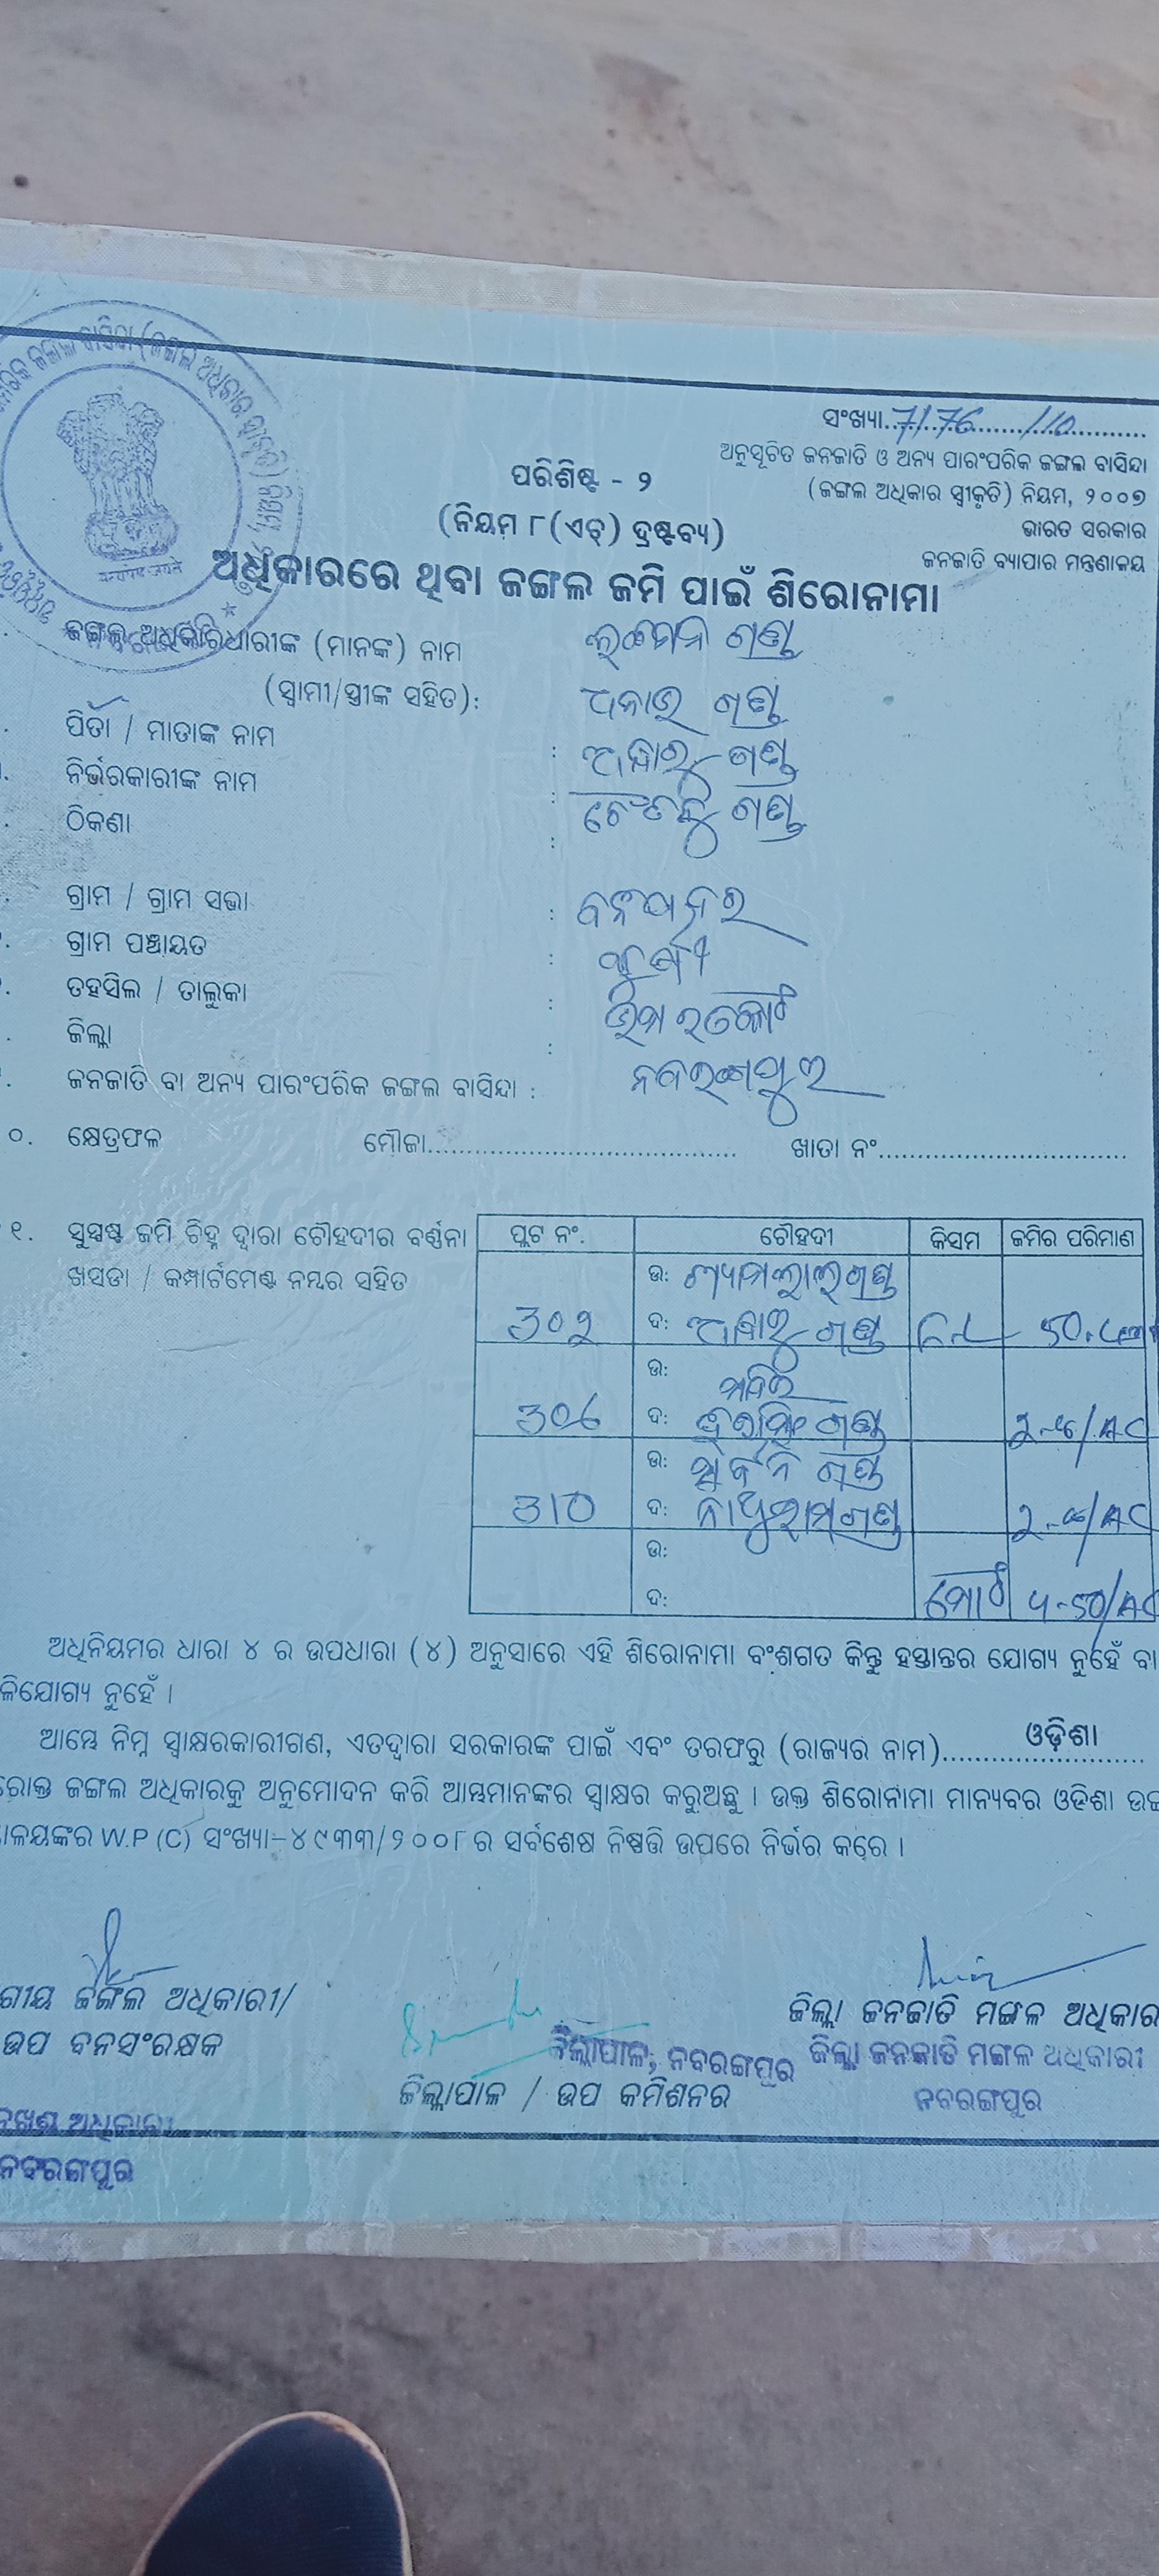 ସଂଖ୍ୟା..7176..../10..........
ଅନୁସୂଚିତ ଜନଜାତି ଓ ଅନ୍ୟ ପାରଂପରିକ ଜଙ୍ଗଲ ବାସିନ୍ଦା
(ଜଙ୍ଗଲ ଅଧିକାର ସ୍ୱୀକୃତି) ନିୟମ, ୨୦୦୭
ଭାରତ ସରକାର
ଜନଜାତି ବ୍ୟାପାର ମନ୍ତ୍ରଣାଳୟ
ପରିଶିଷ୍ଟ - ୨
(ନିୟମ ୮(ଏଚ୍) ଦ୍ରଷ୍ଟବ୍ୟ)
ଅଧିକାରରେ ଥିବା ଜଙ୍ଗଲ ଜମି ପାଇଁ ଶିରୋନାମା
ଜଙ୍ଗଲ ଅଧିକାରଧାରୀଙ୍କ (ମାନଙ୍କ) ନାମ ଲଛମନ ଗଣ୍ଡ
(ସ୍ୱାମୀ/ସ୍ତ୍ରୀଙ୍କ ସହିତ): ଗଣ୍ଡ
ପିତା / ମାତାଙ୍କ ନାମ : ଅନ୍ଧାରୁ ଗଣ୍ଡ
ନିର୍ଭରକାରୀଙ୍କ ନାମ : ଗଣ୍ଡ
ଠିକଣା :
ଗ୍ରାମ / ଗ୍ରାମ ସଭା :
ଗ୍ରାମ ପଞ୍ଚାୟତ :
ତହସିଲ / ତାଲୁକା : ଉମରକୋଟ
ଜିଲ୍ଲା : ନବରଙ୍ଗପୁର
ଜନଜାତି ବା ଅନ୍ୟ ପାରଂପରିକ ଜଙ୍ଗଲ ବାସିନ୍ଦା :
୦. କ୍ଷେତ୍ରଫଳ ମୌଜା.................... ଖାତା ନଂ....................
୧. ସୁସ୍ପଷ୍ଟ ଜମି ଚିହ୍ନ ଦ୍ୱାରା ଚୌହଦୀର ବର୍ଣ୍ଣନା
ଖସଡା / କମ୍ପାର୍ଟମେଣ୍ଟ ନମ୍ବର ସହିତ
ପ୍ଲଟ ନଂ. ଚୌହଦୀ କିସମ ଜମିର ପରିମାଣ
ଉ: ଶ୍ୟାମଲାଲ ଗଣ୍ଡ
302 ଦ: ଅନ୍ଧାରୁ ଗଣ୍ଡ 50.
ଉ:
306 ଦ: ଗଣ୍ଡ /AC
ଉ: ଗଣ୍ଡ
310 ଦ: ନାଥୁରାମ ଗଣ୍ଡ /AC
ଉ:
ଦ: ମୋଟ ୪-50/AC
ଅଧିନିୟମର ଧାରା ୪ ର ଉପଧାରା (୪) ଅନୁସାରେ ଏହି ଶିରୋନାମା ବଂଶଗତ କିନ୍ତୁ ହସ୍ତାନ୍ତର ଯୋଗ୍ୟ ନୁହେଁ ବା
ଳିଯୋଗ୍ୟ ନୁହେଁ ।
ଆମ୍ଭେ ନିମ୍ନ ସ୍ୱାକ୍ଷରକାରୀଗଣ, ଏତଦ୍ୱାରା ସରକାରଙ୍କ ପାଇଁ ଏବଂ ତରଫରୁ (ରାଜ୍ୟର ନାମ)........ଓଡ଼ିଶା........
ରୋକ୍ତ ଜଙ୍ଗଲ ଅଧିକାରକୁ ଅନୁମୋଦନ କରି ଆମ୍ଭମାନଙ୍କର ସ୍ୱାକ୍ଷର କରୁଅଛୁ । ଉକ୍ତ ଶିରୋନାମା ମାନ୍ୟବର ଓଡିଶା ଉଚ୍ଚ
ାଳୟଙ୍କର W.P (C) ସଂଖ୍ୟା-୪୯୩୩/୨୦୦୮ ର ସର୍ବଶେଷ ନିଷ୍ପତ୍ତି ଉପରେ ନିର୍ଭର କରେ ।
ଗୀୟ ଜଙ୍ଗଲ ଅଧିକାରୀ/
ଉପ ବନସଂରକ୍ଷକ
ନଖଣ୍ଡ ଅଧିକାରୀ
ନବରଙ୍ଗପୁର
ଜିଲ୍ଲାପାଳ, ନବରଙ୍ଗପୁର
ଜିଲ୍ଲାପାଳ / ଉପ କମିଶନର
ଜିଲ୍ଲା ଜନଜାତି ମଙ୍ଗଳ ଅଧିକାର
ଜିଲ୍ଲା ଜନଜାତି ମଙ୍ଗଳ ଅଧିକାରୀ
ନବରଙ୍ଗପୁର